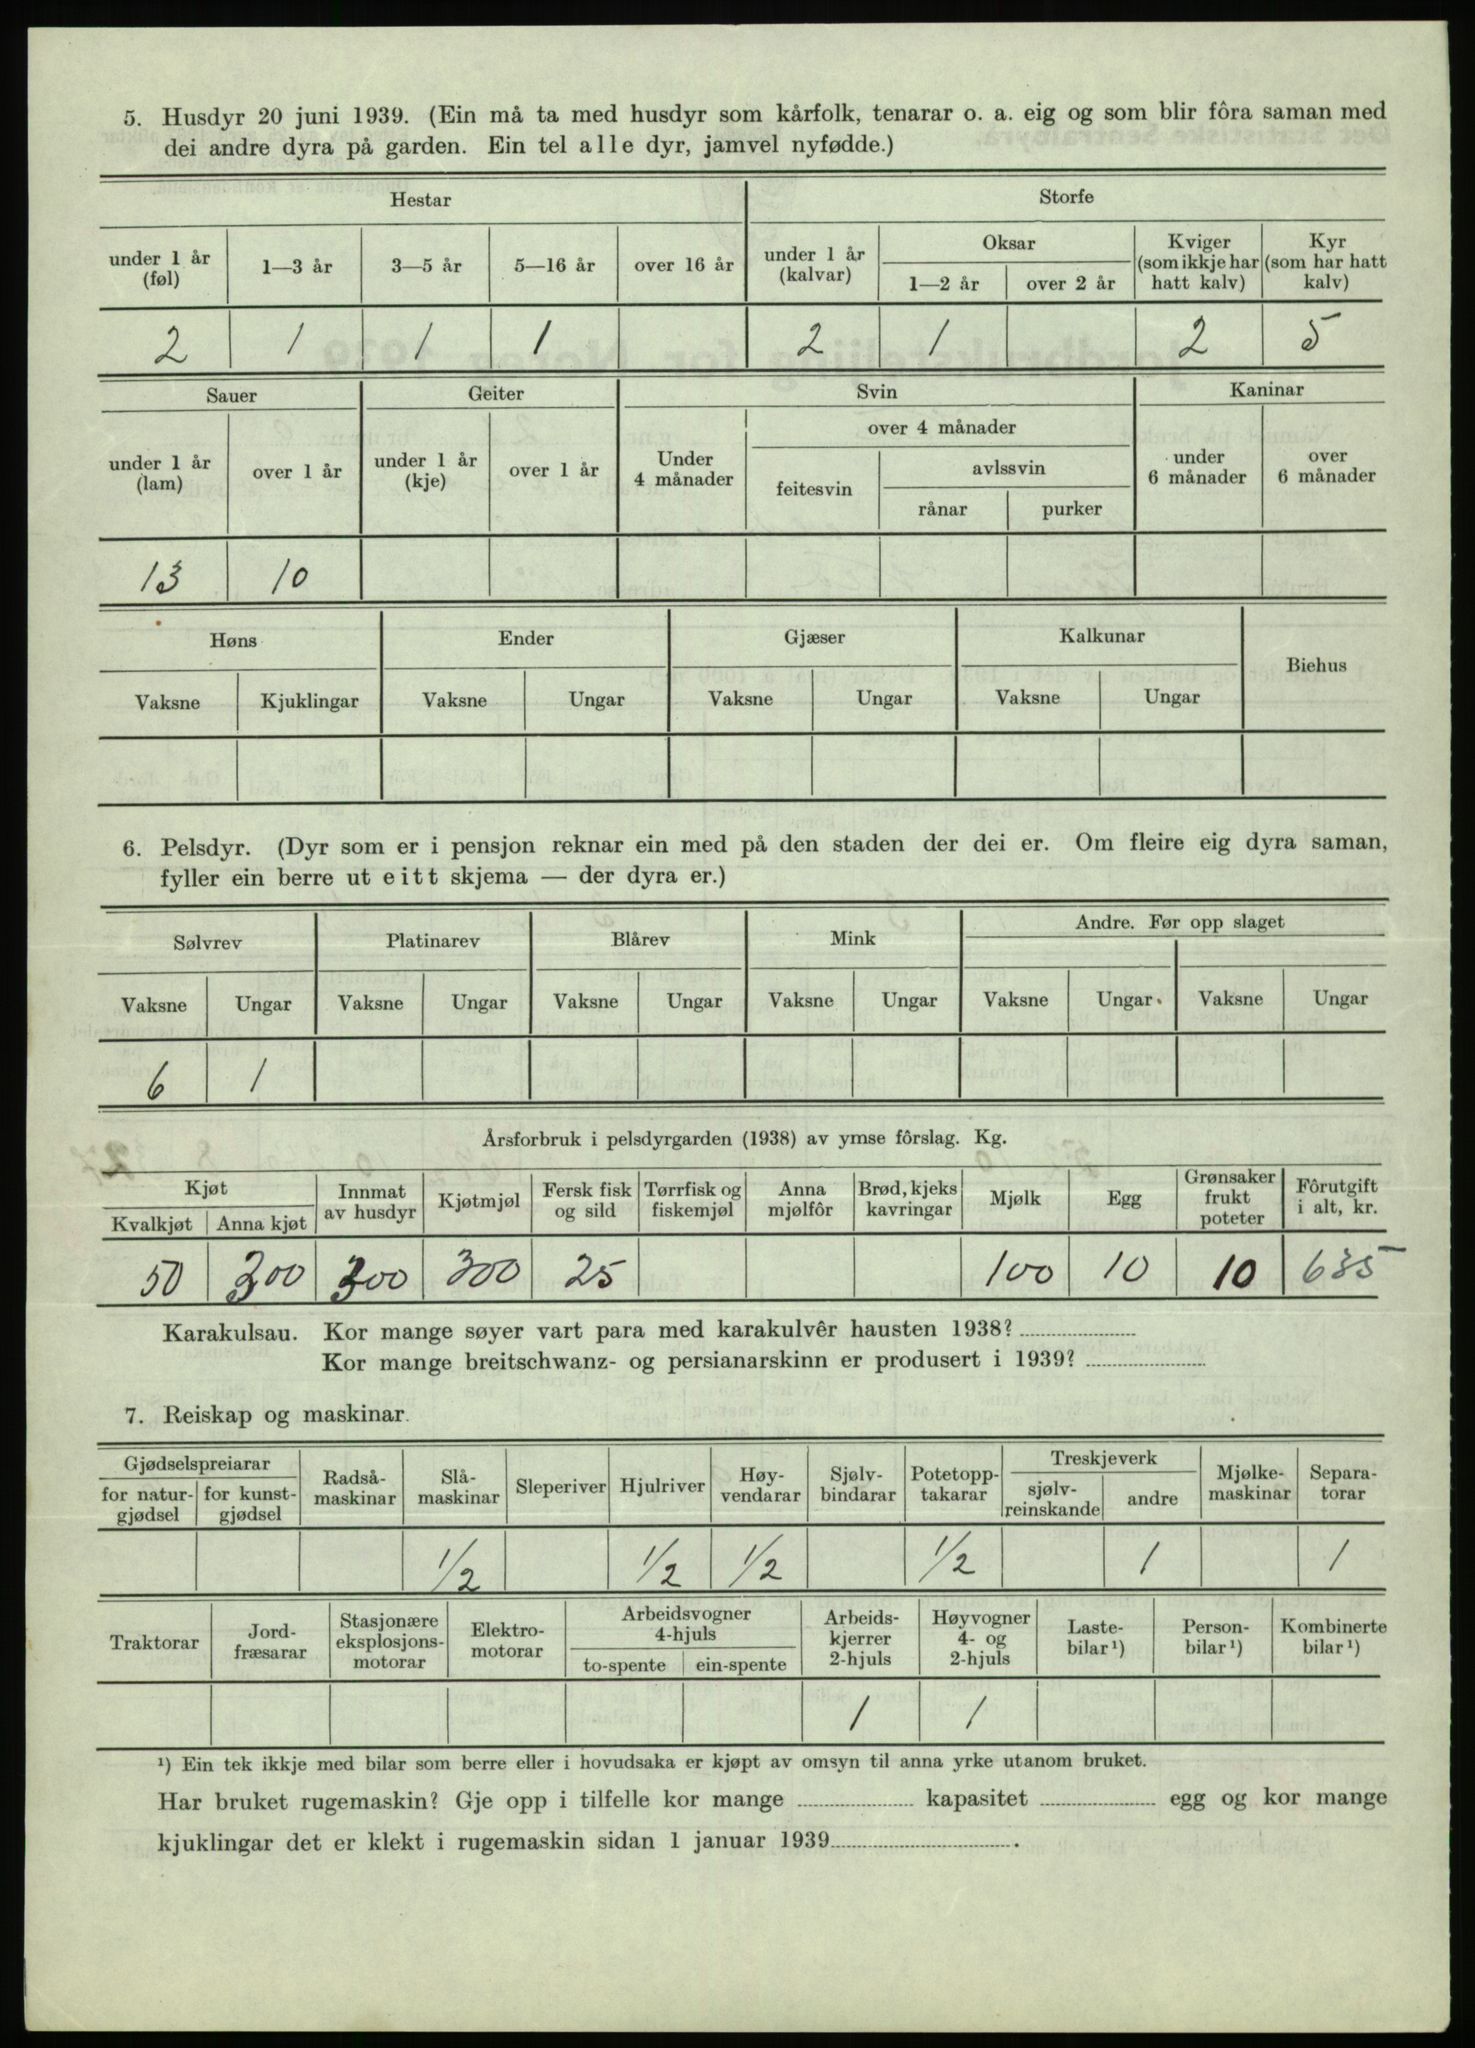 5. Husdyr 20 juni 1939. (Ein må ta med husdyr som kårfolk, tenarar o. a. eig og som blir fôra saman med
dei andre dyra på garden. Ein tel alle dyr, jamvel nyfødde.)
Hestar Storfe
under 1 år (føl) 1—3 år 3—5 år 5—16 år over 16 år under 1 år (kalvar) Oksar 1—2 år over 2 år Kviger (som ikkje har hatt kalv) Kyr (som har hatt kalv)
2 1 1 1 2 1 2 5
Sauer Geiter Svin Kaninar
under 1 år (lam) over 1 år under 1 år (kje) over 1 år Under 4 månader over 4 månader feitesvin avlssvin rånar purker under 6 månader over 6 månader
13 10
Høns Ender Gjæser Kalkunar Biehus
Vaksne Kjuklingar Vaksne Ungar Vaksne Ungar Vaksne Ungar
6. Pelsdyr. (Dyr som er i pensjon reknar ein med på den staden der dei er. Om fleire eig dyra saman,
fyller ein berre ut eitt skjema — der dyra er.)
Sølvrev Platinarev Blårev Mink Andre. Før opp slaget
Vaksne Ungar Vaksne Ungar Vaksne Ungar Vaksne Ungar Vaksne Ungar Vaksne Ungar
6 1
Årsforbruk i pelsdyrgarden (1938) av ymse fôrslag. Kg.
Kjøt Kvalkjøt Anna kjøt Innmat av husdyr Kjøtmjøl Fersk fisk og sild Tørrfisk og fiskemjøl Anna mjølfôr Brød, kjeks kavringar Mjølk Egg Grønsaker frukt poteter Fôrutgift i alt, kr.
50 300 300 300 25 100 10 10 635
Karakulsau. Kor mange søyer vart para med karakulvêr hausten 1938?
Kor mange breitschwanz- og persianarskinn er produsert i 1939?
7. Reiskap og maskinar.
Gjødselspreiarar for natur-gjødsel for kunst-gjødsel Radså-maskinar Slå-maskinar Sleperiver Hjulriver Høy-vendarar Sjølv-bindarar Potetopp-takarar Treskjeverk sjølv-reinskande andre Mjølke-maskinar Separa-torar
1/2 1/2 1/2 1/2 1 1
Traktorar Jord-fræsarar Stasjonære eksplosjons-motorar Elektro-motorar Arbeidsvogner 4-hjuls to-spente ein-spente Arbeids-kjerrer 2-hjuls Høyvogner 4- og 2-hjuls Laste-bilar ¹) Person-bilar ¹) Kombinerte bilar ¹)
1 1
¹) Ein tek ikkje med bilar som berre eller i hovudsaka er kjøpt av omsyn til anna yrke utanom bruket.
Har bruket rugemaskin? Gje opp i tilfelle kor mange kapasitet egg og kor mange
kjuklingar det er klekt i rugemaskin sidan 1 januar 1939 .